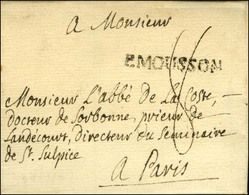 A Monsieur
P.MOUSSON
Monsieur L'abbé De La Coste,
docteur de Sorbonne, prieur de
Landécourt, Directeur du Seminaire
de St. Sulpice
A Paris